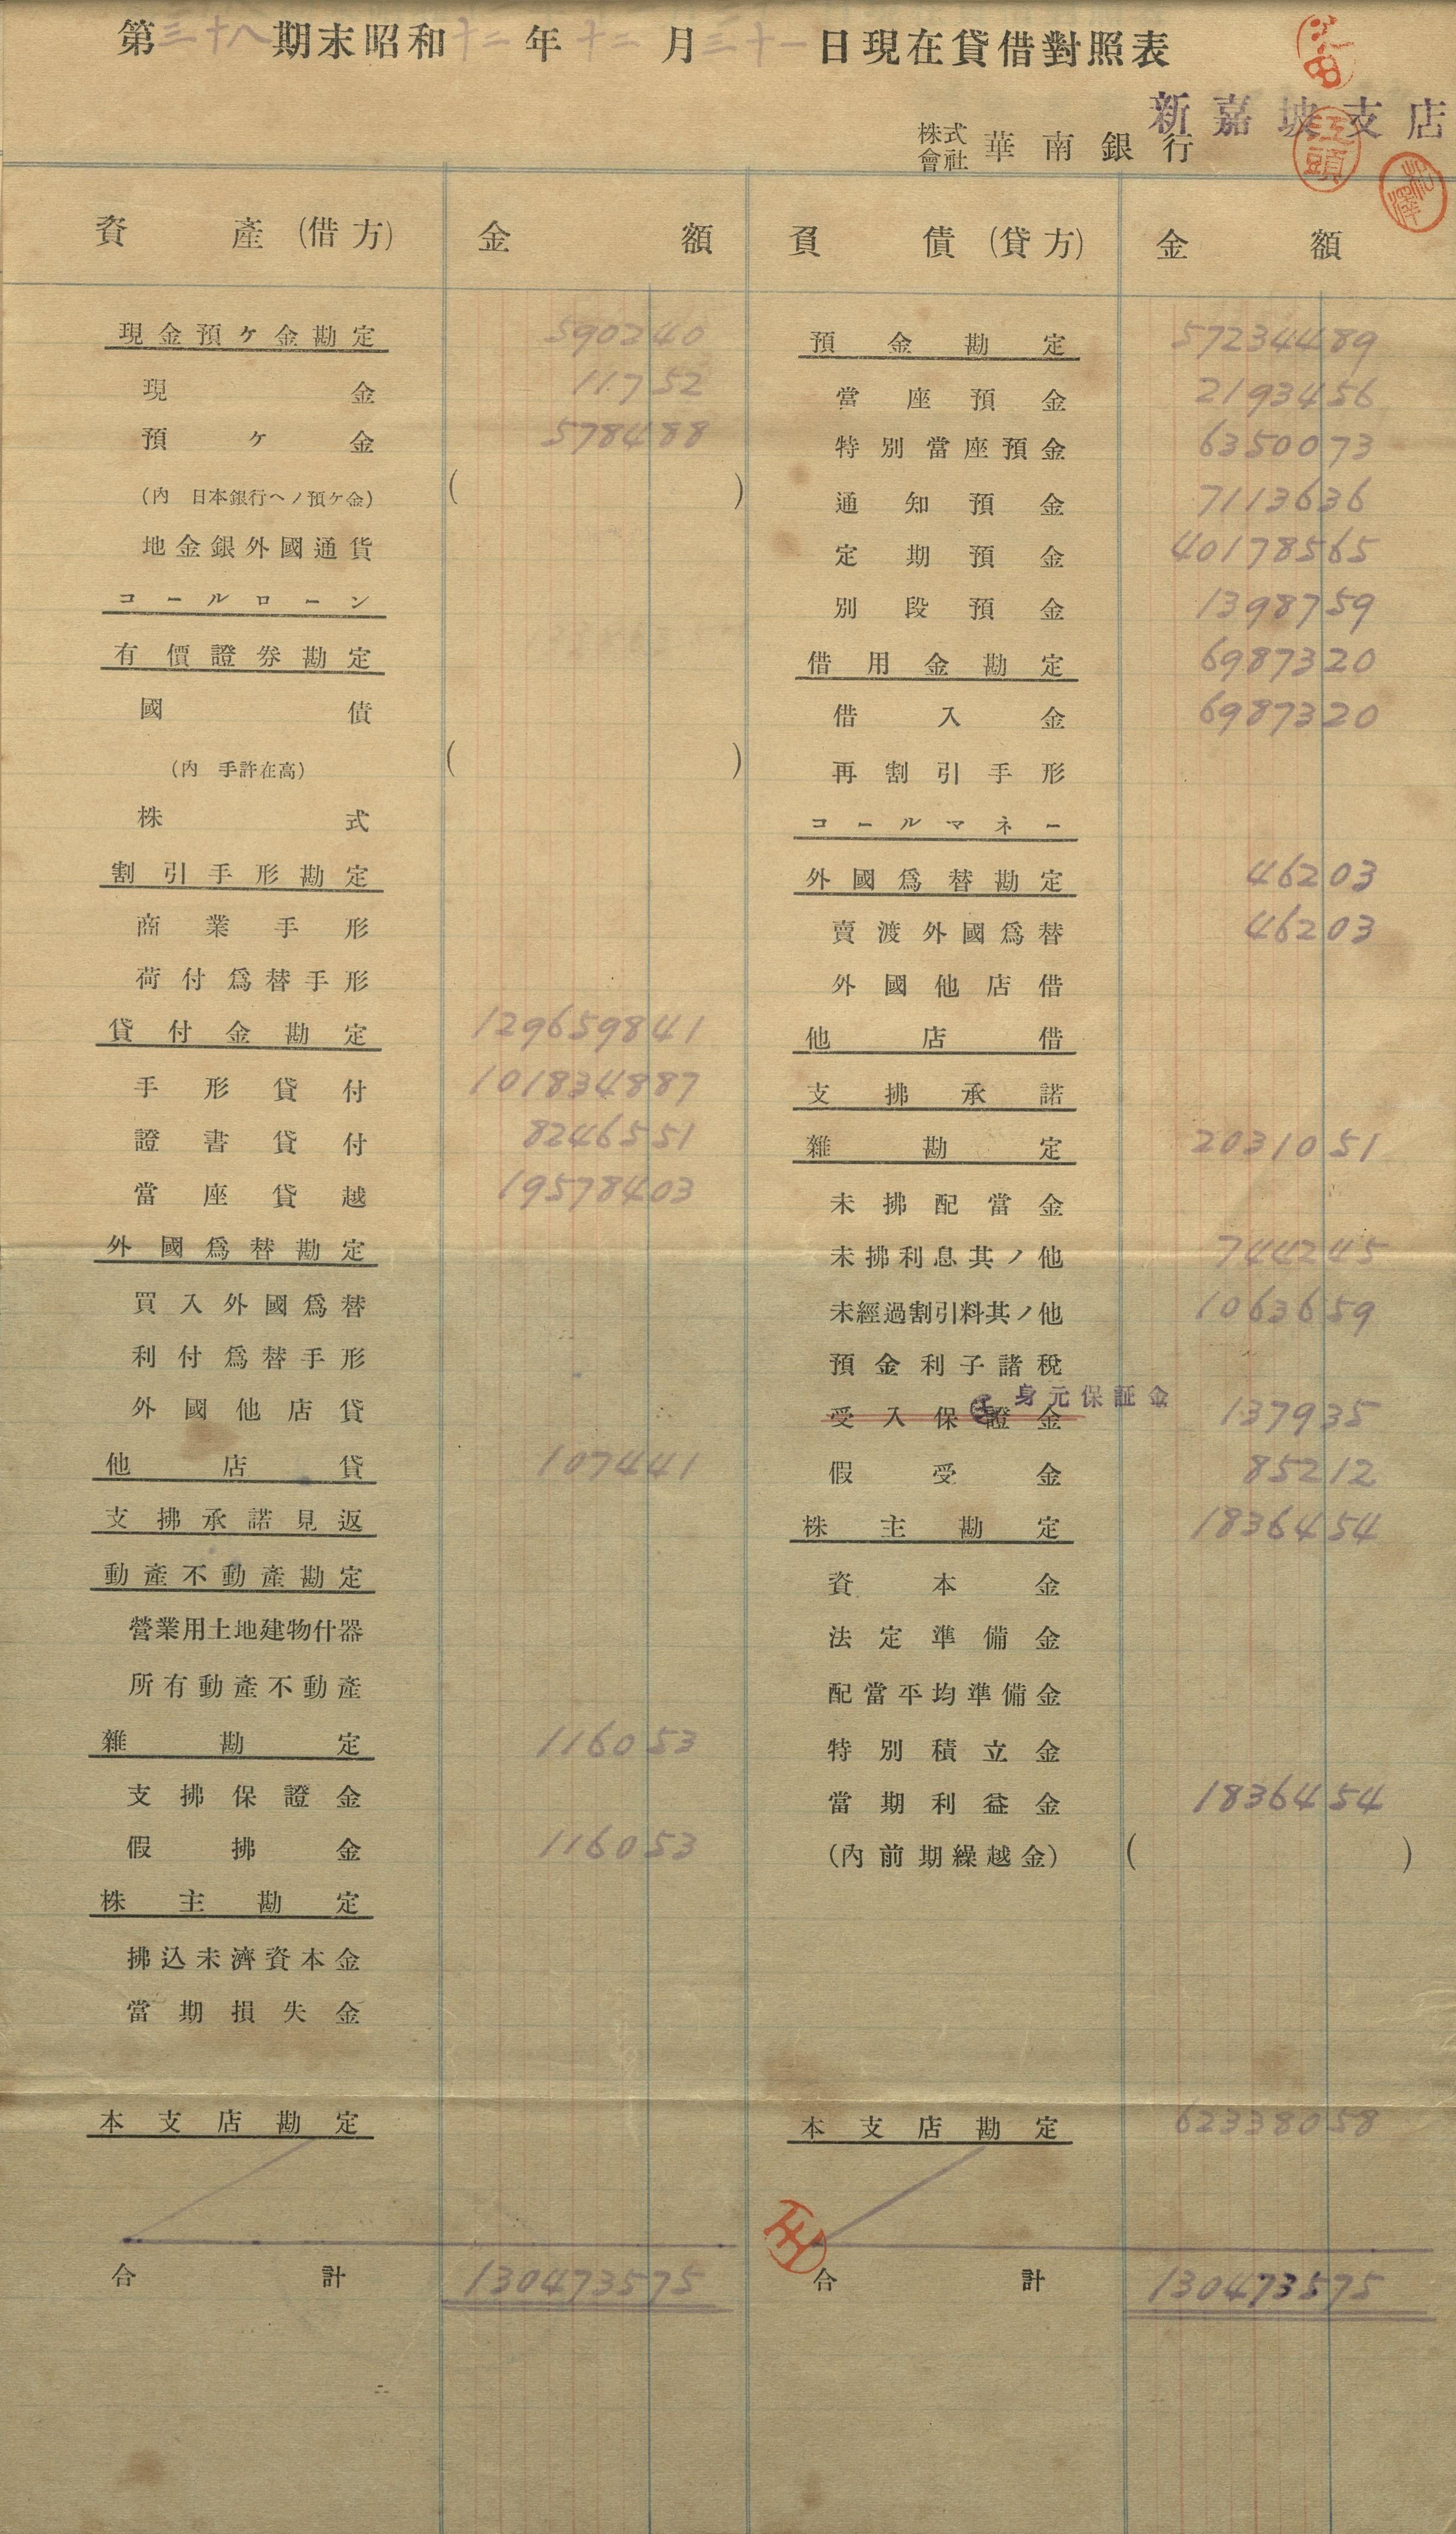 第三十八期末昭和十二年十二月三十一日現在貸借對照表
新嘉坡支店
株式會社 華南銀行
江頭
資產(借方) 金額 負債(貸方) 金額
現金預ケ金勘定 590240
現金 11752
預ケ金 578488
(內 日本銀行ヘノ預ケ金) ( )
地金銀外國通貨
コールローン
有價證券勘定
國債
(內 手許在高) ( )
株式
割引手形勘定
商業手形
荷付爲替手形
貸付金勘定 129659841
手形貸付 101834887
證書貸付 8246551
當座貸越 19578403
外國爲替勘定
買入外國爲替
利付爲替手形
外國他店貸
他店貸 107441
支拂承諾見返
動產不動產勘定
營業用土地建物什器
所有動產不動產
雜勘定 116053
支拂保證金
假拂金 116053
株主勘定
拂込未濟資本金
當期損失金
本支店勘定
合計 130473575
預金勘定 57234489
當座預金 2193456
特別當座預金 6350073
通知預金 7113636
定期預金 40178565
別段預金 1398759
借用金勘定 6987320
借入金 6987320
再割引手形
コールマネー
外國爲替勘定 46203
賣渡外國爲替 46203
外國他店借
他店借
支拂承諾
雜勘定 2031051
未拂配當金
未拂利息其ノ他 744245
未經過割引料其ノ他 1063659
預金利子諸稅
身元保証金
受入保證金 137935
假受金 85212
株主勘定 1836454
資本金
法定準備金
配當平均準備金
特別積立金
當期利益金 1836454
(內前期繰越金) ( )
本支店勘定 62338058
合計 130473575